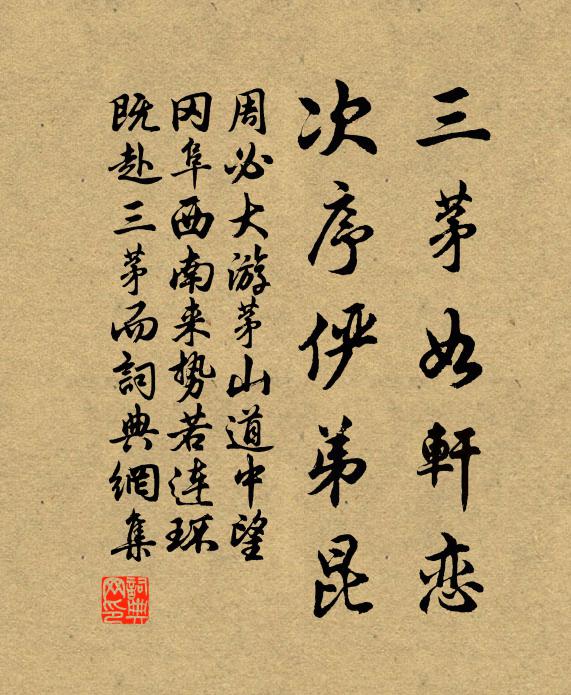 三茅如軒恋
次序俨弟昆
周必大游茅山道中望
冈阜西南来势若连环
既赴三茅而詞典網集
詞典网印